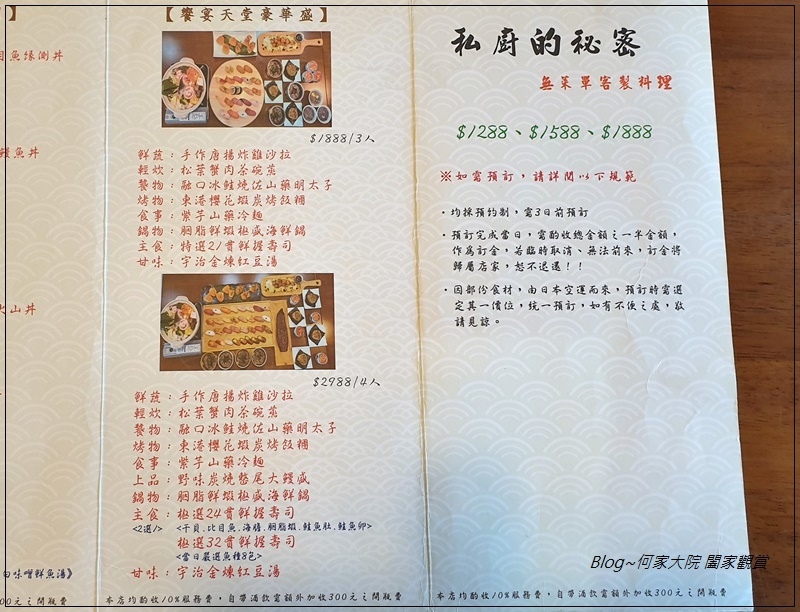 】
目魚緣側丼
鰻魚丼
火山丼
白味噌鮮魚湯》
00元之開瓶費
【饗宴天堂豪華盛】
$1888/3人
鮮蔬：手作唐揚炸雞沙拉
輕炊：松葉蟹肉茶碗蒸
饗物：融口冰鮭燒佐山藥明太子
烤物：東港櫻花蝦炭烤飯糰
食事：紫芋山藥冷麵
鍋物：胭脂鮮蝦極盛海鮮鍋
主食：特選21貫鮮握壽司
甘味：宇治金煉紅豆湯
$2988/4人
鮮蔬：手作唐揚炸雞沙拉
輕炊：松葉蟹肉茶碗蒸
饗物：融口冰鮭燒佐山藥明太子
烤物：東港櫻花蝦炭烤飯糰
食事：紫芋山藥冷麵
上品：野味炭燒整尾大鰻盛
鍋物：胭脂鮮蝦極盛海鮮鍋
主食：極選24貫鮮握壽司
<2選1> <干貝、比目魚、海膽、胭脂蝦、鮭魚肚、鮭魚卵>
極選32貫鮮握壽司
<當日嚴選魚種8包>
甘味：宇治金煉紅豆湯
本店均酌收10%服務費，自帶酒飲需額外加收300元之開瓶費
私廚的秘密
無菜單客製料理
$1288、$1588、$1888
※如需預訂，請詳閱以下規範
·均採預約制，需3日前預訂
·預訂完成當日，需酌收總金額之一半金額，
作為訂金，若臨時取消、無法前來，訂金將
歸屬店家，恕不退還！！
·因部份食材，由日本空運而來，預訂時需選
定其一價位，統一預訂，如有不便之處，敬
請見諒。
本店均酌收10%服務費，自帶酒飲需額外加收300元之開瓶費
Blog~何家大院 闔家觀賞